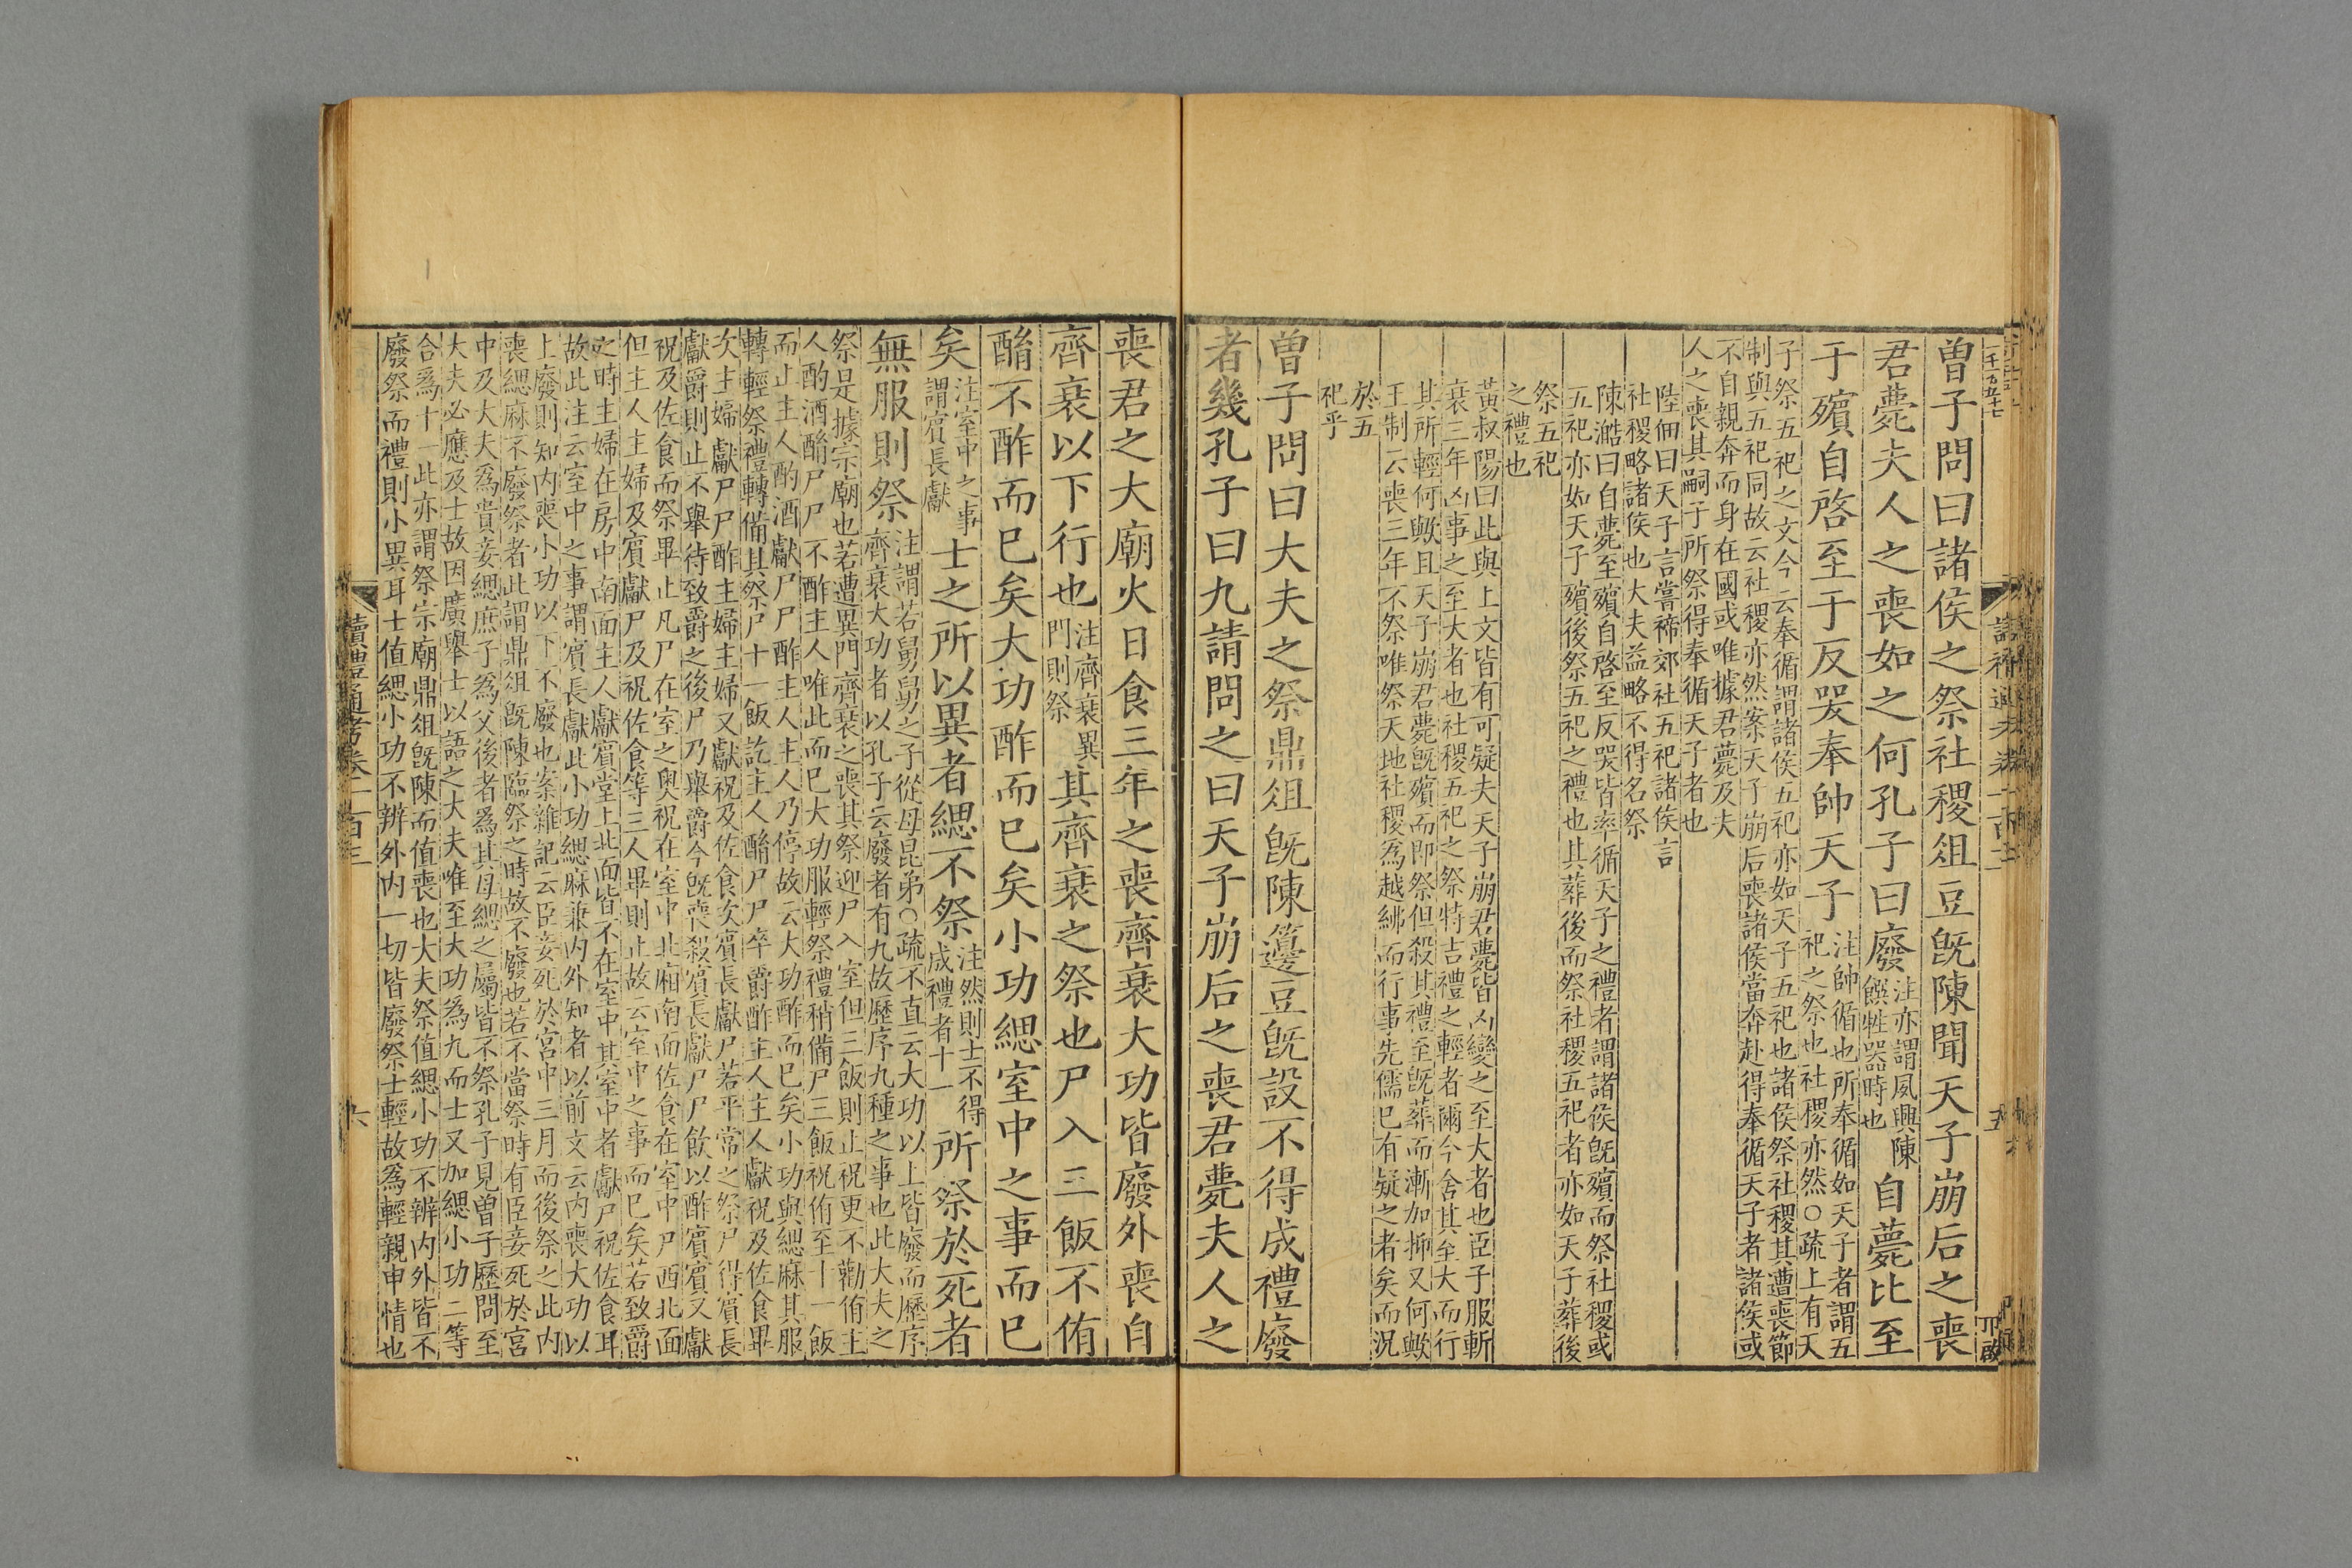 曾子問曰諸侯之祭社稷俎豆既陳聞天子崩后之喪
君薨夫人之喪如之何孔子曰廢注亦謂夙興陳饌牲器時也自薨比至
于殯自啓至于反哭奉帥天子注帥循也所奉循如天子者謂五祀之祭也社稷亦然○疏上有天
子祭五祀之文今云奉循謂諸侯五祀亦如天子五祀也諸侯祭社稷其遭喪節
制與五祀同故云社稷亦然案天子崩后喪諸侯當奔赴得奉循天子者諸侯或
不自親奔而身在國或唯據君薨及夫
人之喪其嗣子所祭得奉循天子者也
陸佃曰天子言嘗禘郊社五祀諸侯言
社稷略諸侯也大夫益略不得名祭
陳澔曰自薨至殯自啓至反哭皆率循天子之禮者謂諸侯既殯而祭社稷或
五祀亦如天子殯後祭五祀之禮也其葬後而祭社稷五祀者亦如天子葬後
祭五祀
之禮也
黃叔陽曰此與上文皆有可疑夫天子崩君薨皆凶變之至大者也臣子服斬
衰三年凶事之至大者也社稷五祀之祭特吉禮之輕者爾今舍其至大而行
其所輕何歟且天子崩君薨既殯而即祭但殺其禮至既葬而漸加抑又何歟
王制云喪三年不祭唯祭天地社稷為越紼而行事先儒已有疑之者矣而況
於五
祀乎
曾子問曰大夫之祭鼎俎既陳籩豆既設不得成禮廢
者幾孔子曰九請問之曰天子崩后之喪君薨夫人之
喪君之大廟火日食三年之喪齊衰大功皆廢外喪自
齊衰以下行也注齊衰異門則祭其齊衰之祭也尸入三飯不侑
酳不酢而已矣大功酢而已矣小功緦室中之事而已
矣注室中之事謂賓長獻士之所以異者緦不祭注然則士不得成禮者十一所祭於死者
無服則祭注謂若舅舅之子從母昆弟○疏不直云大功以上皆廢而歷序齊衰大功者以孔子云廢者有九故歷序九種之事也此大夫之
祭是據宗廟也若遭異門齊衰之喪其祭迎尸入室但三飯則止祝更不勸侑主
人酌酒酳尸尸不酢主人唯此而已大功服輕祭禮稍備尸三飯祝侑至十一飯
而止主人酌酒獻尸尸酢主人主人乃停故云大功酢而已矣小功與緦麻其服
轉輕祭禮轉備其祭尸十一飯訖主人酳尸尸卒爵酢主人主人獻祝及佐食畢
次主婦獻尸尸酢主婦主婦又獻祝及佐食次賓長獻尸若平常之祭尸得賓長
獻爵則止不舉待致爵之後尸乃舉爵今既喪殺賓長獻尸尸飲以酢賓賓又獻
祝及佐食而祭畢止凡尸在室之奧祝在室中北廂南面佐食在室中戶西北面
但主人主婦及賓獻尸及祝佐食等三人畢則止故云室中之事而已矣若致爵
之時主婦在房中南面主人獻賓堂上北面皆不在室中其室中者獻尸祝佐食耳
故此注云室中之事謂賓長獻此小功緦麻兼內外知者以前文云內喪大功以
上廢則知內喪小功以下不廢也案雜記云臣妾死於宮中三月而後祭之此內
喪緦麻不廢祭者此謂鼎俎既陳臨祭之時故不廢也若不當祭時有臣妾死於宮
中及大夫為貴妾緦庶子為父後者為其母緦之屬皆不祭孔子見曾子歷問至
大夫必應及士故因廣舉士以語之大夫唯至大功為九而士又加緦小功二等
合為十一此亦謂祭宗廟鼎俎既陳而值喪也大夫祭值緦小功不辨內外皆不
廢祭而禮則小異耳士值緦小功不辨外內一切皆廢祭士輕故為輕親申情也
讀禮通考卷一百三
六